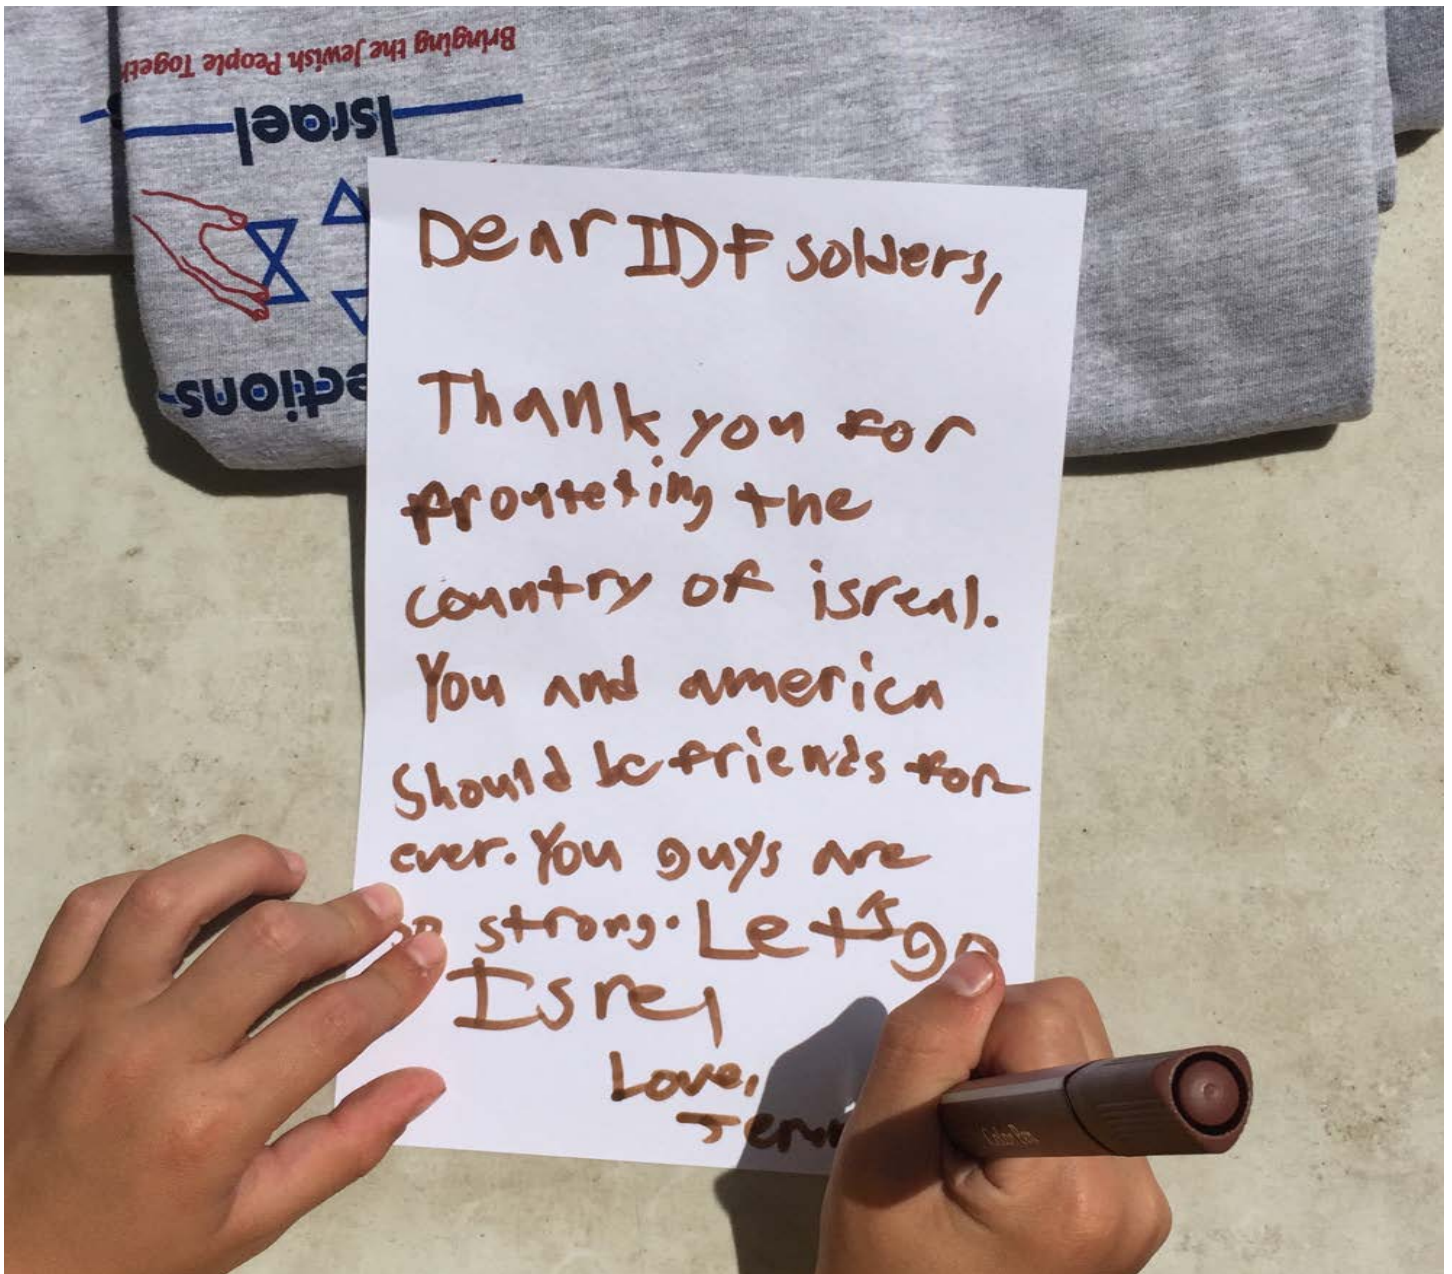 Bringing the Jewish People
Israel
Dear IDF solders,
Thank you for
the
country of isreal.
You and america
Should be friends for
ever. You guys are
strong. Let's go
Isrel
Love,